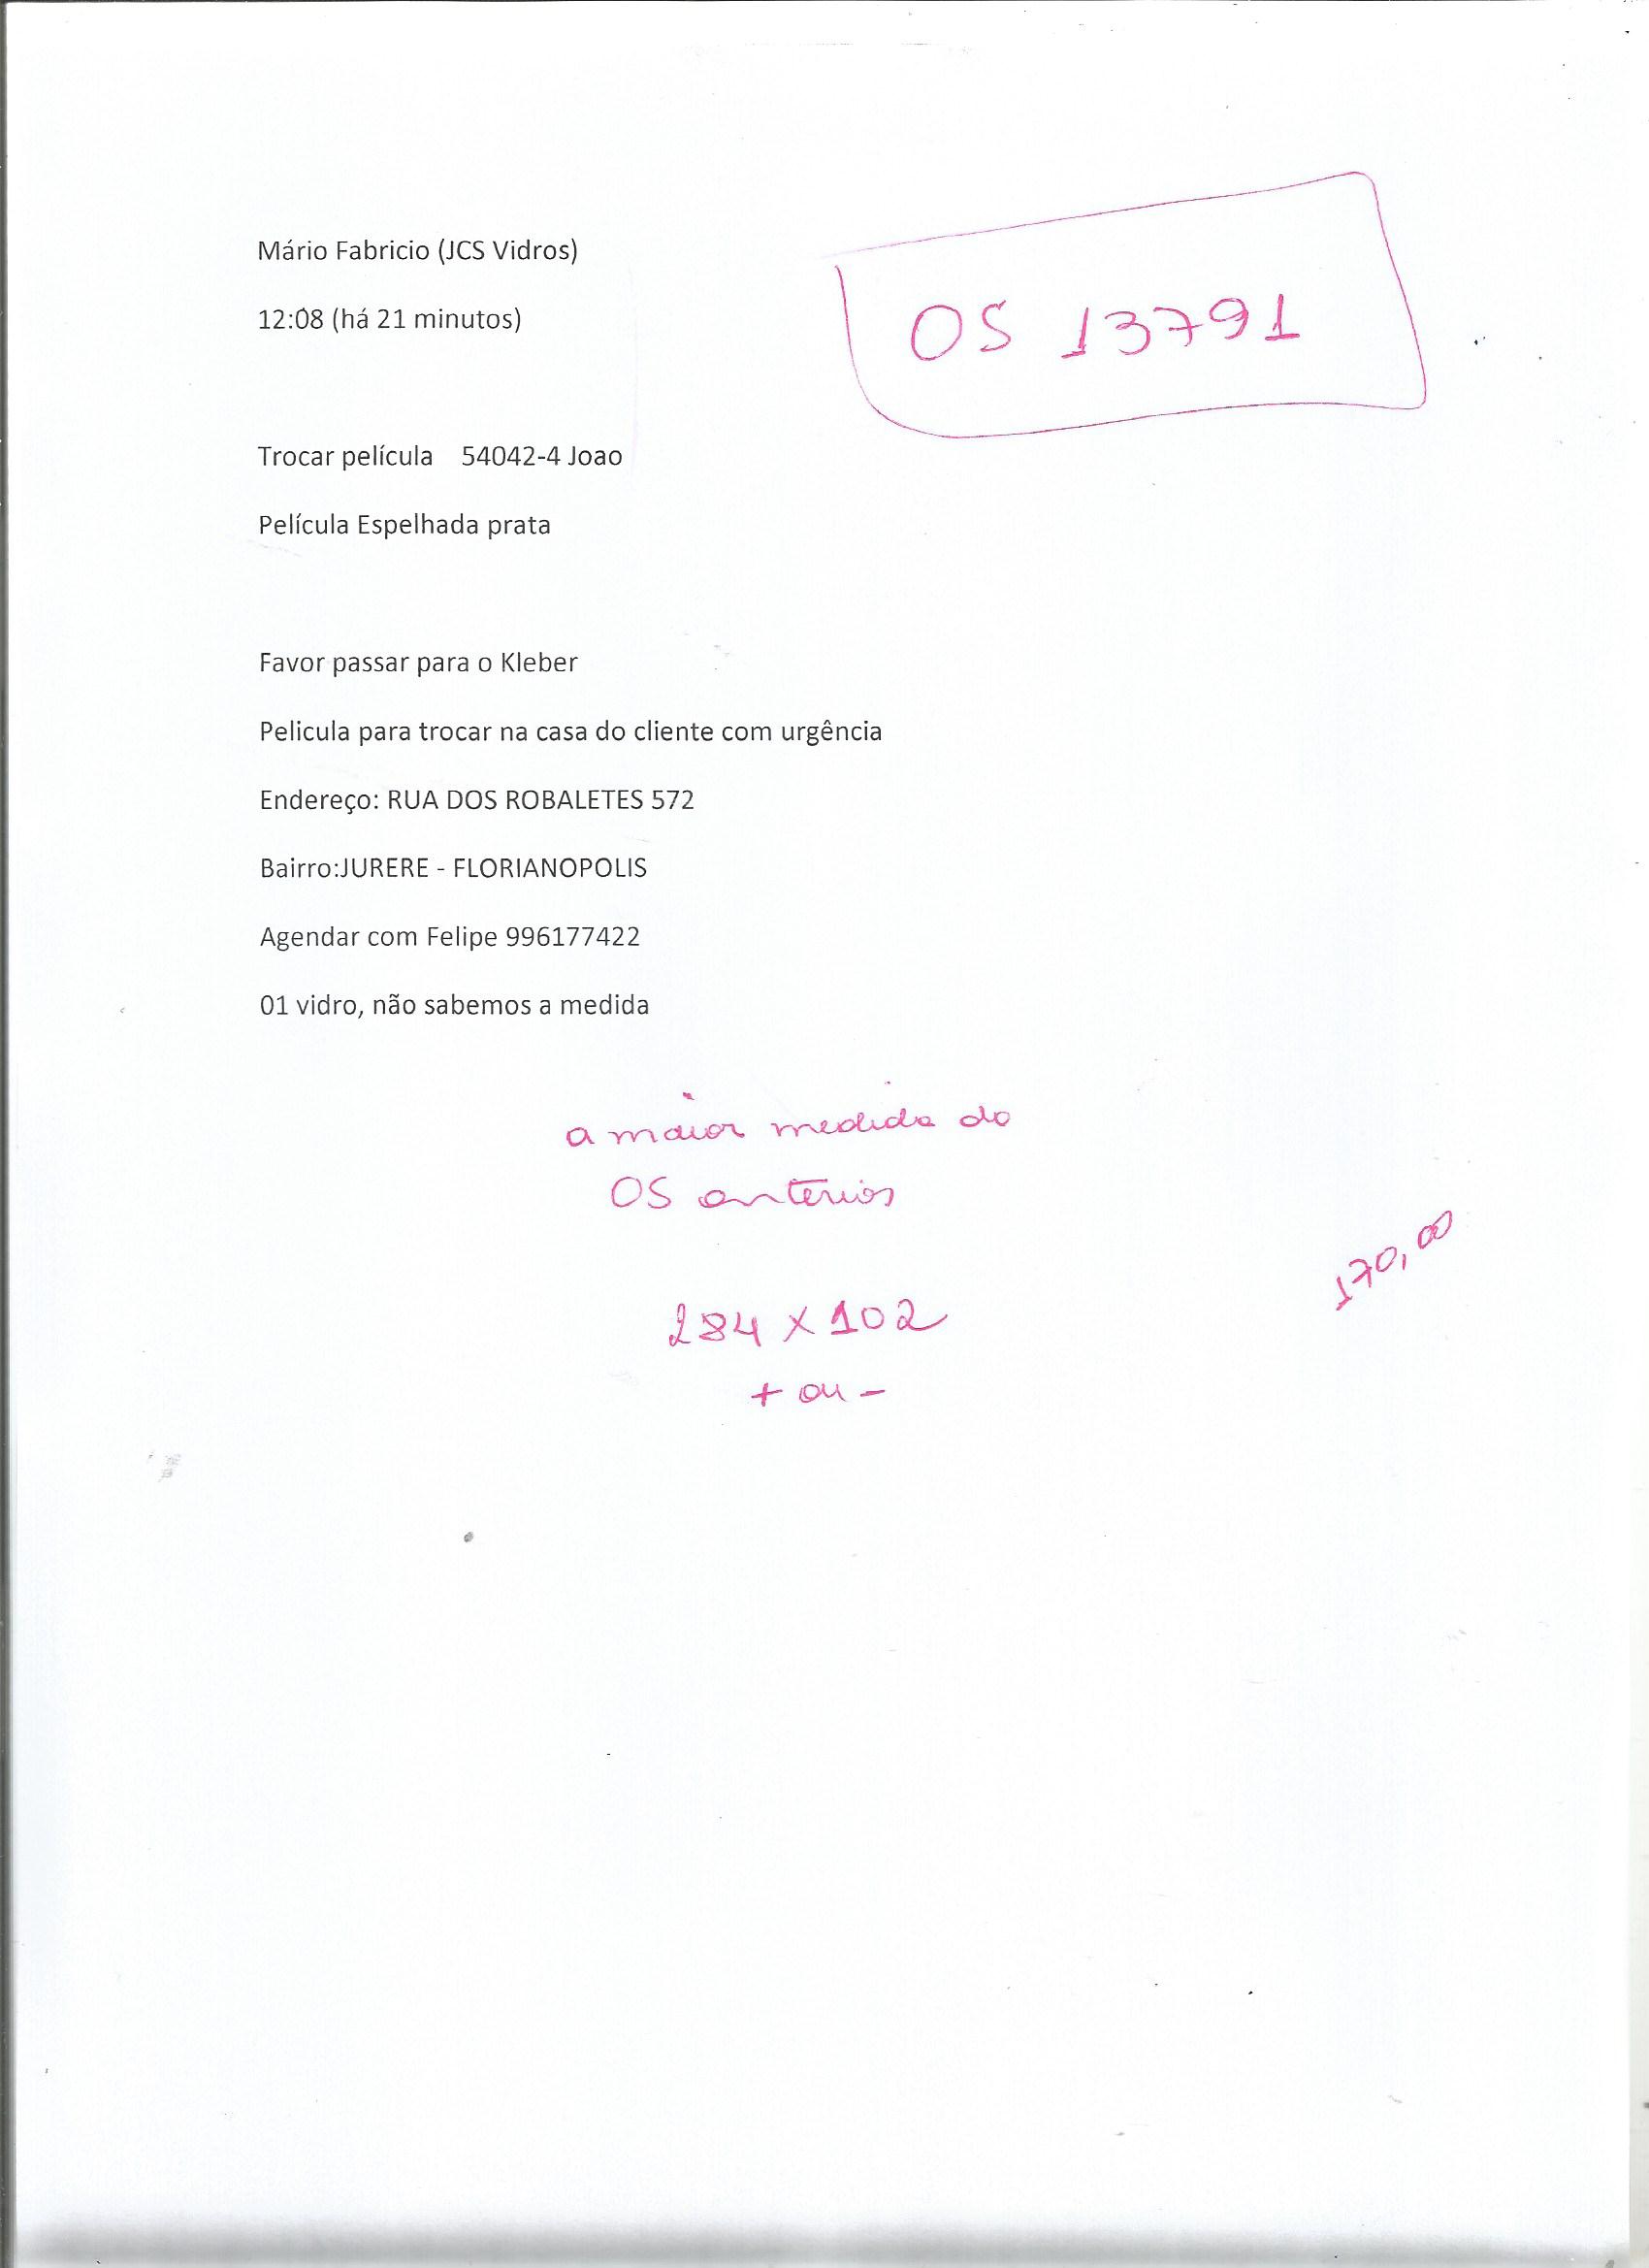 Mário Fabricio (JCS Vidros)
12:08 (há 21 minutos)
OS 13791
Trocar película 54042-4 Joao
Película Espelhada prata
Favor passar para o Kleber
Pelicula para trocar na casa do cliente com urgência
Endereço: RUA DOS ROBALETES 572
Bairro:JURERE - FLORIANOPOLIS
Agendar com Felipe 996177422
01 vidro, não sabemos a medida
a maior medida do
OS anterios
170,00
284 x 102
+ ou -